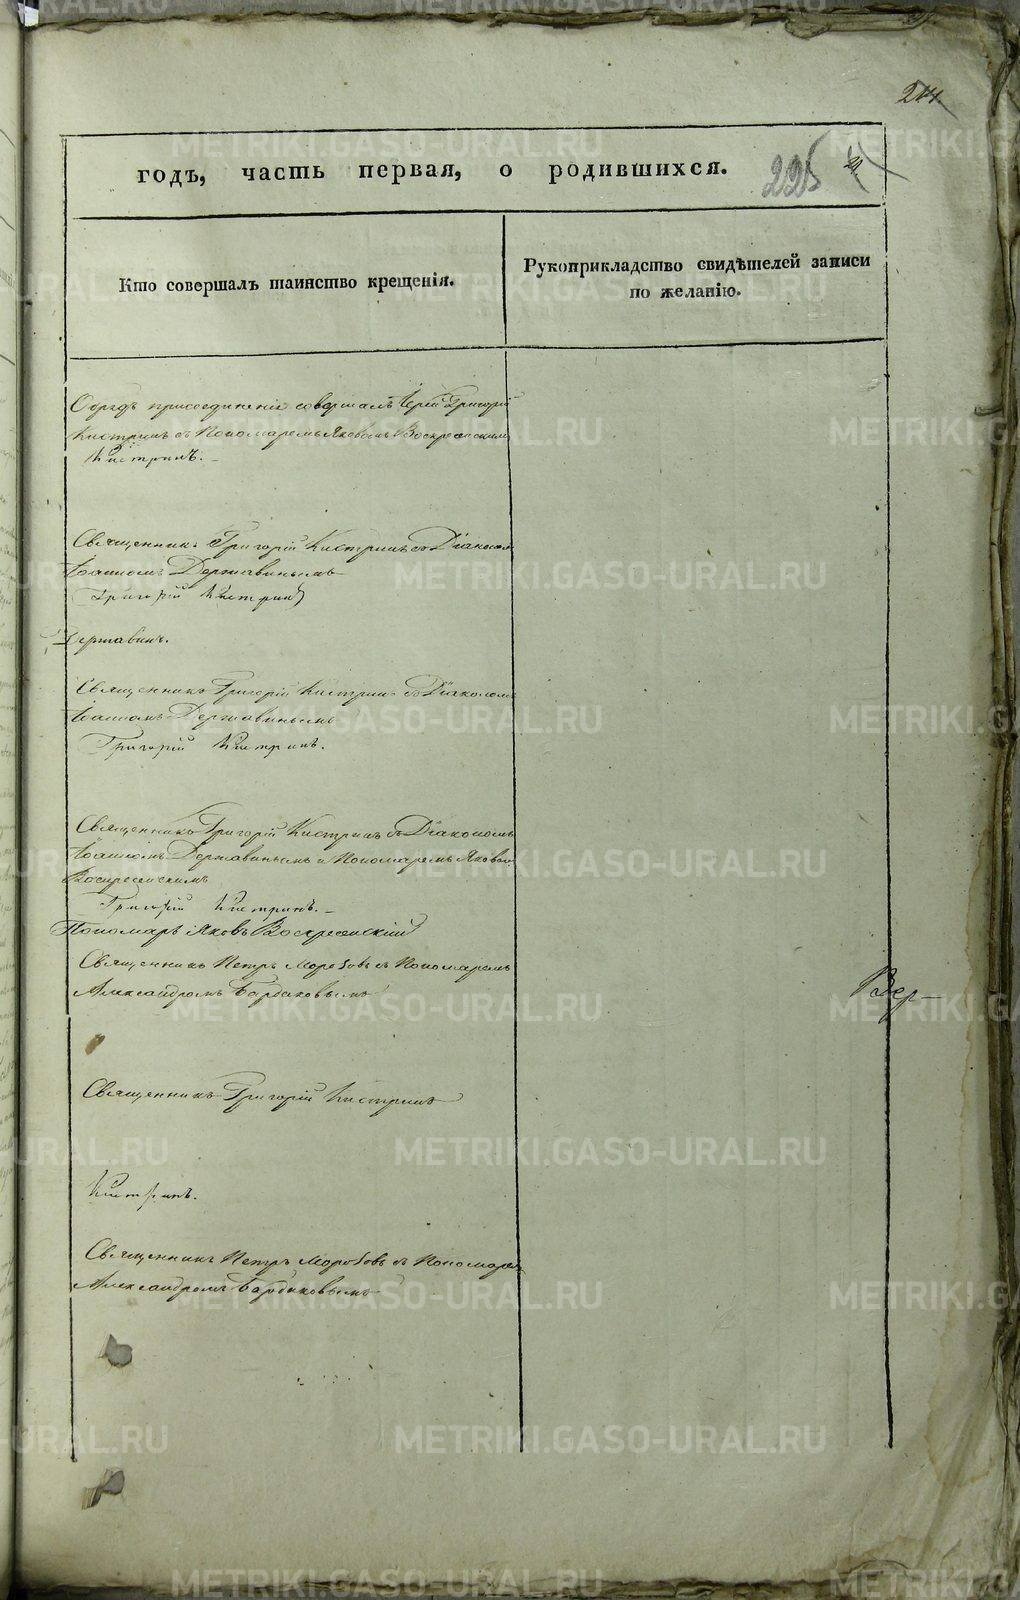 214.
годъ, часть первая, о родившихся. 225
Кто совершалъ таинство крещенія.
Рукоприкладство свидѣтелей записи
по желанію.
Обрядъ присоединенія совершалъ Іерей Григорій
Кистринъ съ Пономаремъ Яковомъ Воскресенскимъ
Кистринъ.
Священникъ Григорій Кистринъ съ Діакономъ
Іоанномъ Державинымъ
Григорій Кистринъ
Державинъ.
Священникъ Григорій Кистринъ съ Діакономъ
Іоанномъ Державинымъ
Григорій Кистринъ.
Священникъ Григорій Кистринъ съ Діакономъ
Іоанномъ Державинымъ и Пономаремъ Яковомъ
Воскресенскимъ
Григорій Кистринъ.
Пономарь Яковъ Воскресенскій
Священникъ Петръ Морозовъ съ Пономаремъ
Александромъ
Священникъ Григорій Кистринъ
Кистринъ.
Священникъ Петръ Морозовъ съ Пономарем
Александромъ
METRIKI.GASO-URAL.RU